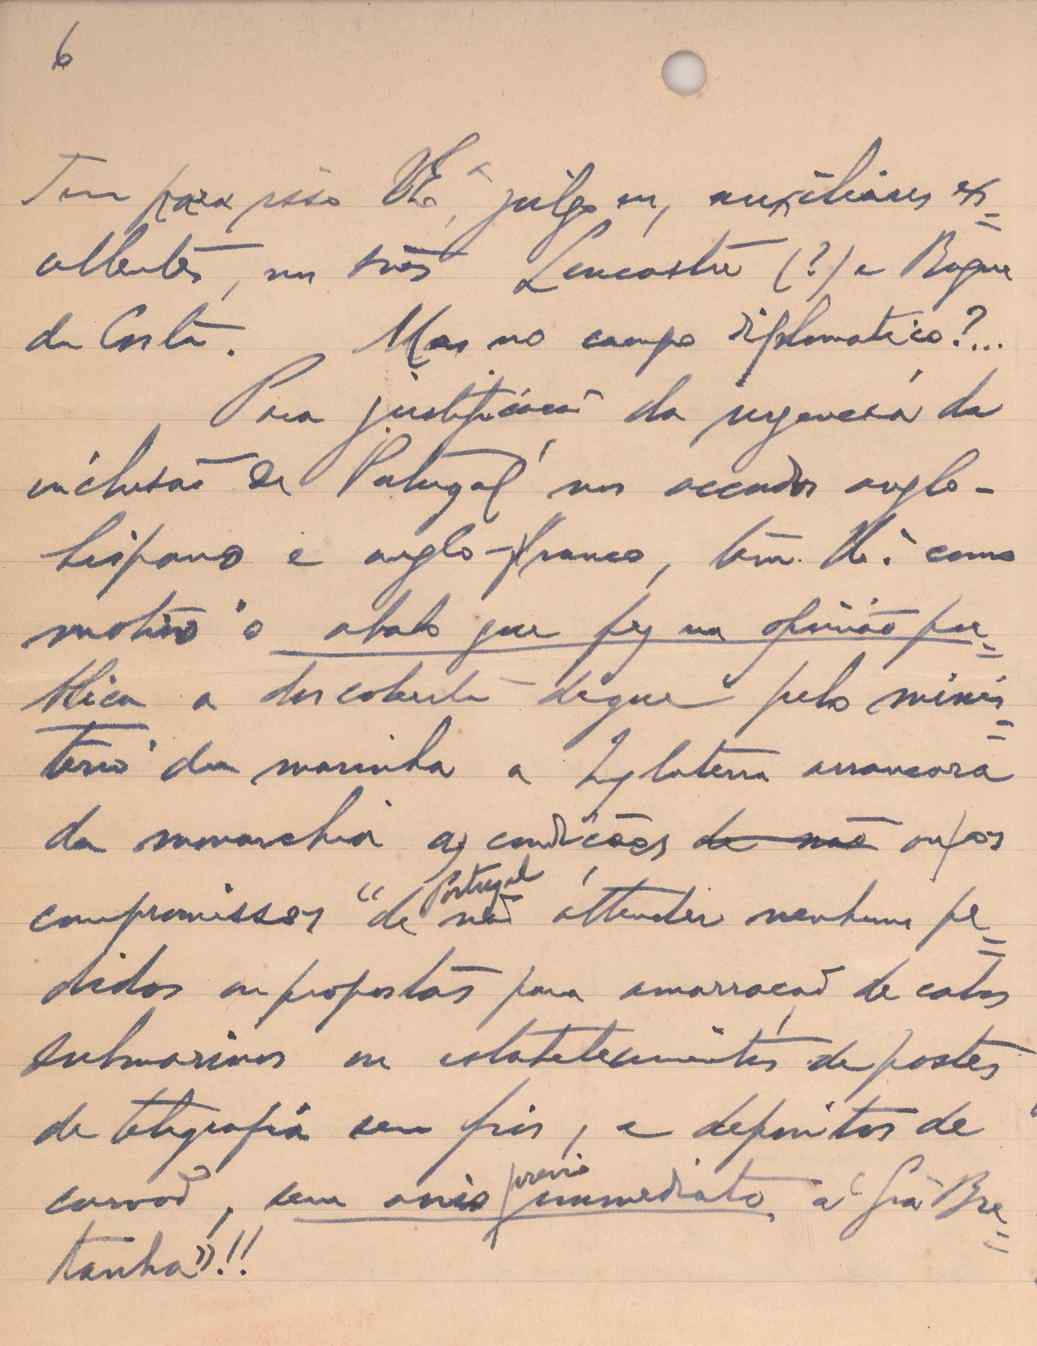 6
Tem para isso V.Exª, julgo eu, auxiliares ex=
cellentes, nos srs Lencastre (?) e Roque
da Costa. Mas no campo diplomatico?...
Para justificação da urgencia da
inclusão de Portugal nos accordos anglo-
hispano e anglo-franco, tem V.Exª como
motivo o abalo que fez na opinião pu=
blica a descoberta de que pelo minis=
terio da marinha a Inglaterra arrancara
da monarchia as condições de não ou os
compromissos "de Portugal não attender nenhuns pe=
didos ou propostas para amarração de cabos
submarinos ou estabelecimentos de postes
de telegrafia sem fios, e depositos de
carvão, sem aviso previo immediato, á Grã Bre=
tanha"!!